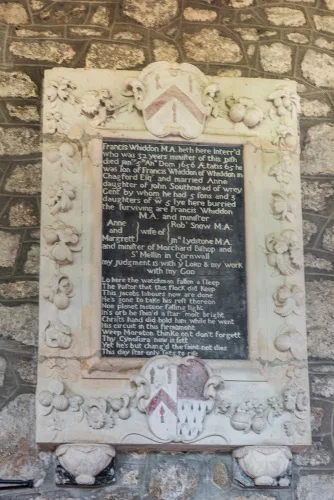 Francis Whiddon M.A. lieth here Interr'd
who was 32 yeares minister of this pish
died Jan: 5th An° Dom 1656 Ætatis 65 he
was son of Francis Whiddon of Whiddon in
Chagford Esqr and married Anne
daughter of John Southmead of wrey
Gent by whom he had 5 sons and 3
daughters of w 5 lye here burried
the surviving are Francis Whiddon
M.A. and minister
Anne Robt Snow M.A.
and wife of
Margrett Jno Lydstone M.A.
and minister of Morchard Bishop and
St Mellin in Cornwall
my judgment is with ye Lord & my work
with my God
Lo here the watchman fallen a sleep
The Pastor that this flock did keep
This Jacobs labours now are done
He's gone to take his rest thereon
Noe planet missone falling light
In's orb he shin'd a star most bright
Christs hand did hold him while he went
His circuit in this firmament
Weep Moreton thinke not don't forgett
Thy Cynosura now is sett
Yet he's but chang'd the saint not dies
This day star only sets to rise